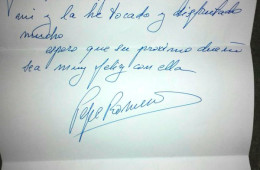 mi y la he tocado y disfrutado
mucho
espero que su proximo dueño
sea muy feliz con ella
Pepe Romero